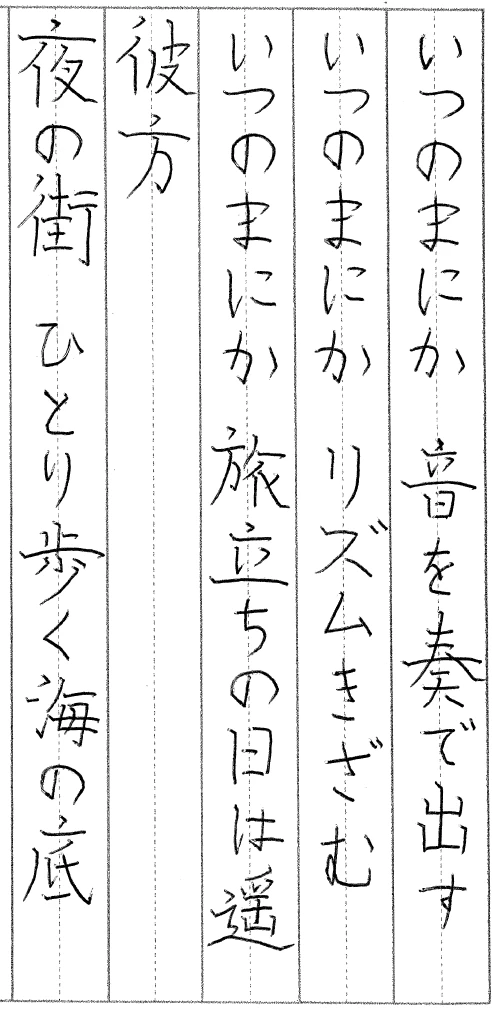 いつのまにか 音を奏で出す
いつのまにか リズムきざむ
いつのまにか 旅立ちの日は遥
彼方
夜の街 ひとり歩く海の底